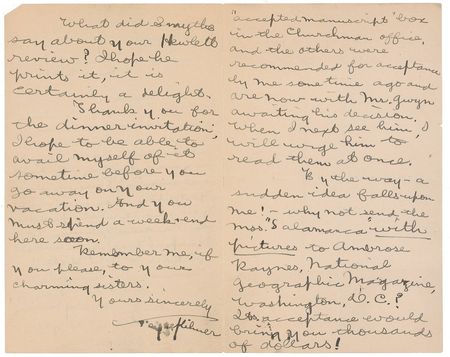 What did Smythe
say about your Hewlett
review? I hope he
prints it, it is
certainly a delight.
Thank you for
the dinner invitation,
I hope to be able to
avail myself of it
sometime before you
go away on your
vacation. And you
must spend a week-end
here soon.
Remember me, if
you please, to your
charming sisters.
Yours sincerely
Kilmer
"accepted manuscript" box
in the Churchman office,
and the others were
recommended for acceptance
by me some time ago and
are now with Mr. Gwyn
awaiting his decision.
When I next see him, I
will urge him to
read them at once.
By the way - a
sudden idea falls upon
me! - why not send the
Mos. "Salamaca" with
pictures to Ambrose
Raynes, National
Geographic Magazine,
Washington, D.C.?
Its acceptance would
bring you thousands
of dollars!